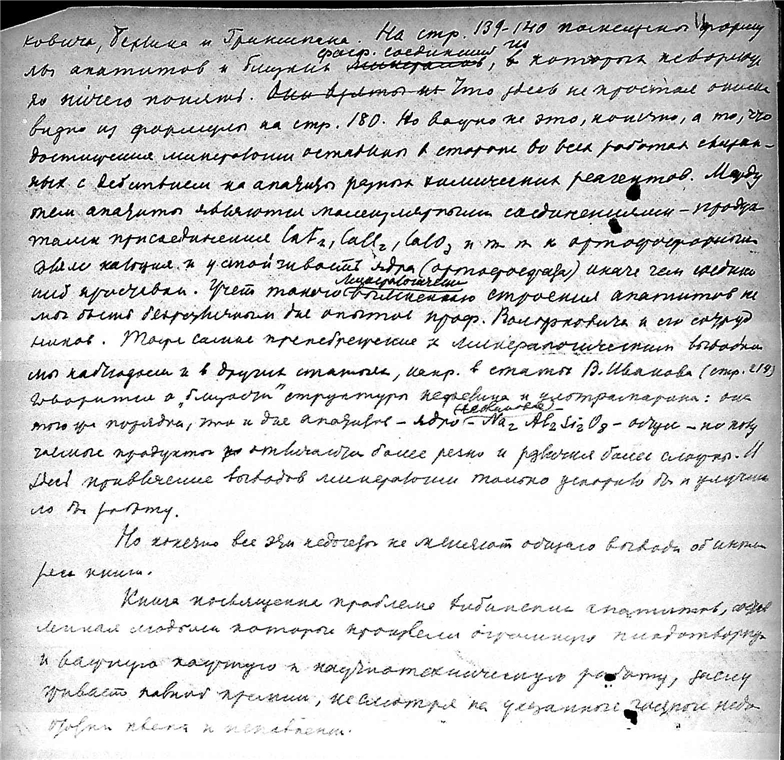 ковича, Беркина и Гриншпана. На стр. 139-140 помещены форму
лы апатитов и близких минералов, фосф. соединений из которых невозмож
но ничего понять. Что здесь не простая описка
видно из формулы на стр. 180. Но важно не это, конечно, а то, что
достижения минералогии оставлены в стороне во всех работах связан-
ных с действием на апатиты разных химических реагентов. Между
тем апатиты являются молекулярными соединениями - продук
тами присоединения CaF₂, CaCl₂, CaCO₃ и т п к ортофосфорным
кальция и устойчивость ядра (ортофосфата) иначе чем соедине
ний присадки. Учет такого минералогически выясненного строения апатитов не
мог быть безразличным для опытов проф. Вольфковича и его сотруд
ников. То же самое пренебрежение к минералогическим выводам
мы наблюдаем и в других статьях, напр. в статье В. Иванова (стр. 219)
говорится о "близости" структуры нефелина и ультрамарина: она
того же порядка, что и для апатитов - ядро - Na₂ Al₂ Si₂ O₈ - общее - но полу
чаемые продукты отличаются более резко и различия более сложны. И
здесь привлечение выводов минералогии только ускорило бы и улучши
ло бы работу.
Но конечно все эти недочеты не меняют общего вывода об инте
ресе книги.
Книга посвященная проблеме хибинских апатитов, состав
ленная людьми которые произвели огромную плодотворную
и важную научную и научнотехническую работу, заслу
живает полной премии, несмотря на указанные недо